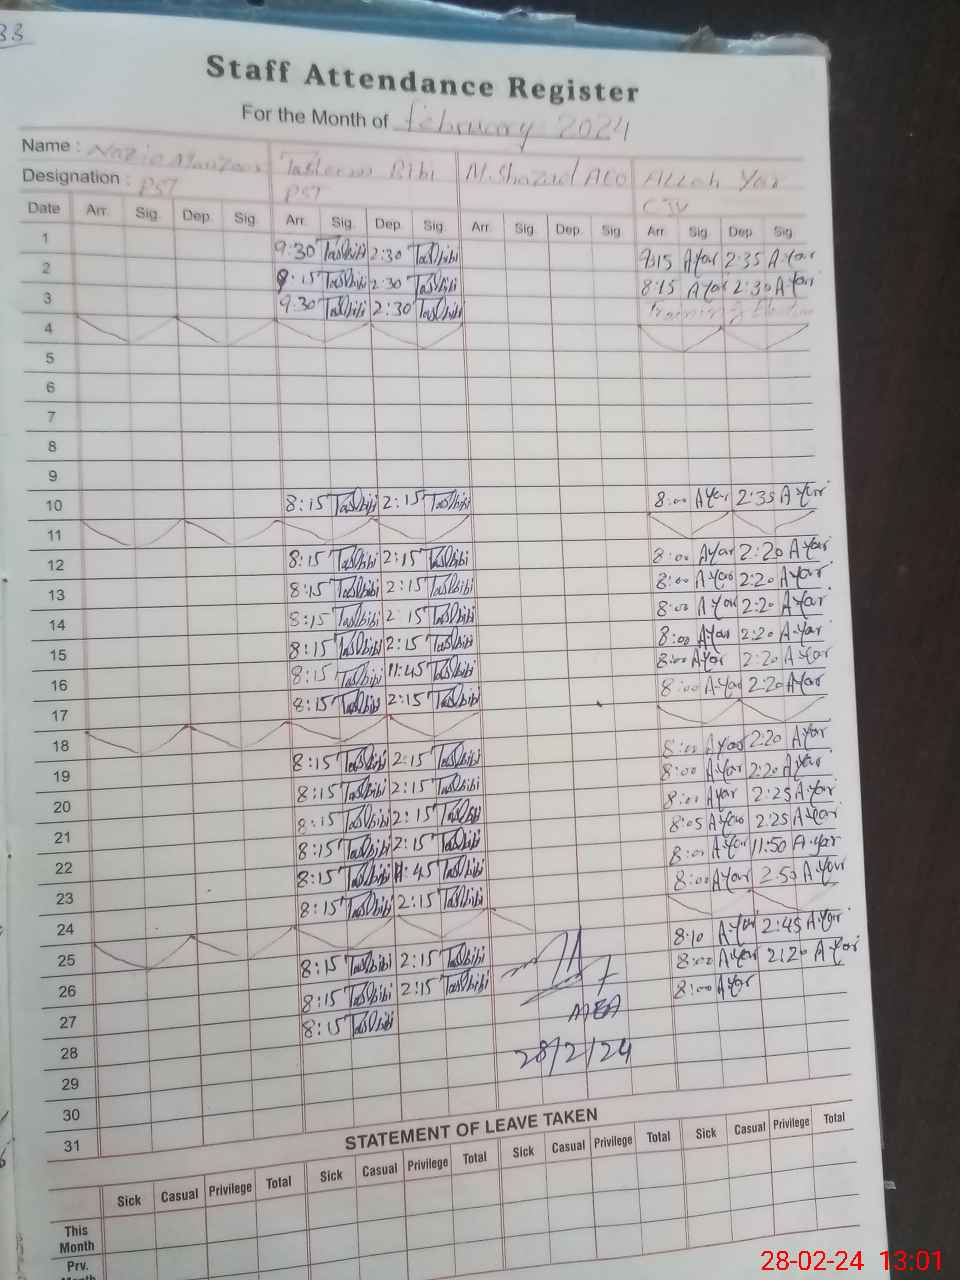 33
Staff Attendance Register
For the Month of february 2024
Name : Nazia Manzoor Tasleem Bibi M.Shazad ALO Allah Yar
Designation : PST PST CJV
Date Arr. Sig. Dep. Sig. Arr. Sig. Dep. Sig. Arr. Sig. Dep. Sig. Arr. Sig. Dep. Sig.
1 9:30 Tasbibi 2:30 Tasbibi 9:15 A Yar 2:35 A Yar
2 8:15 Tasbibi 2:30 Tasbibi 8:15 A Yar 2:30 A Yar
3 9:30 Tasbibi 2:30 Tasbibi Training of Election
4
5
6
7
8
9
10 8:15 Tasbibi 2:15 Tasbibi 8:00 A Yar 2:35 A Yar
11
12 8:15 Tasbibi 2:15 Tasbibi 8:00 A Yar 2:20 A Yar
13 8:15 Tasbibi 2:15 Tasbibi 8:00 A Yar 2:20 A Yar
14 8:15 Tasbibi 2 15 Tasbibi 8:00 A Yar 2:20 A Yar
15 8:15 Tasbibi 2:15 Tasbibi 8:00 A Yar 2:20 A Yar
16 8:15 Tasbibi 11:45 Tasbibi 8:00 A Yar 2:20 A Yar
17 8:15 Tasbibi 2:15 Tasbibi 8:00 A Yar 2:20 A Yar
18
19 8:15 Tasbibi 2:15 Tasbibi 8:00 A Yar 2:20 A Yar
20 8:15 Tasbibi 2:15 Tasbibi 8:00 A Yar 2:20 A Yar
21 8:15 Tasbibi 2:15 Tasbibi 8:00 A Yar 2:25 A Yar
22 8:15 Tasbibi 2:15 Tasbibi 8:05 A Yar 2:25 A Yar
23 8:15 Tasbibi 11:45 Tasbibi 8:00 A Yar 11:50 A Yar
24 8:15 Tasbibi 2:15 Tasbibi 8:00 A Yar 2:50 A Yar
25
26 8:15 Tasbibi 2:15 Tasbibi 8:10 A Yar 2:45 A Yar
27 8:15 Tasbibi 2:15 Tasbibi 8:00 A Yar 2:20 A Yar
28 8:15 Tasbibi 8:00 A Yar
MEA
28/2/24
29
30
31
STATEMENT OF LEAVE TAKEN
Sick Casual Privilege Total Sick Casual Privilege Total Sick Casual Privilege Total Sick Casual Privilege Total
This Month
Prv. Month
28-02-24 13:01